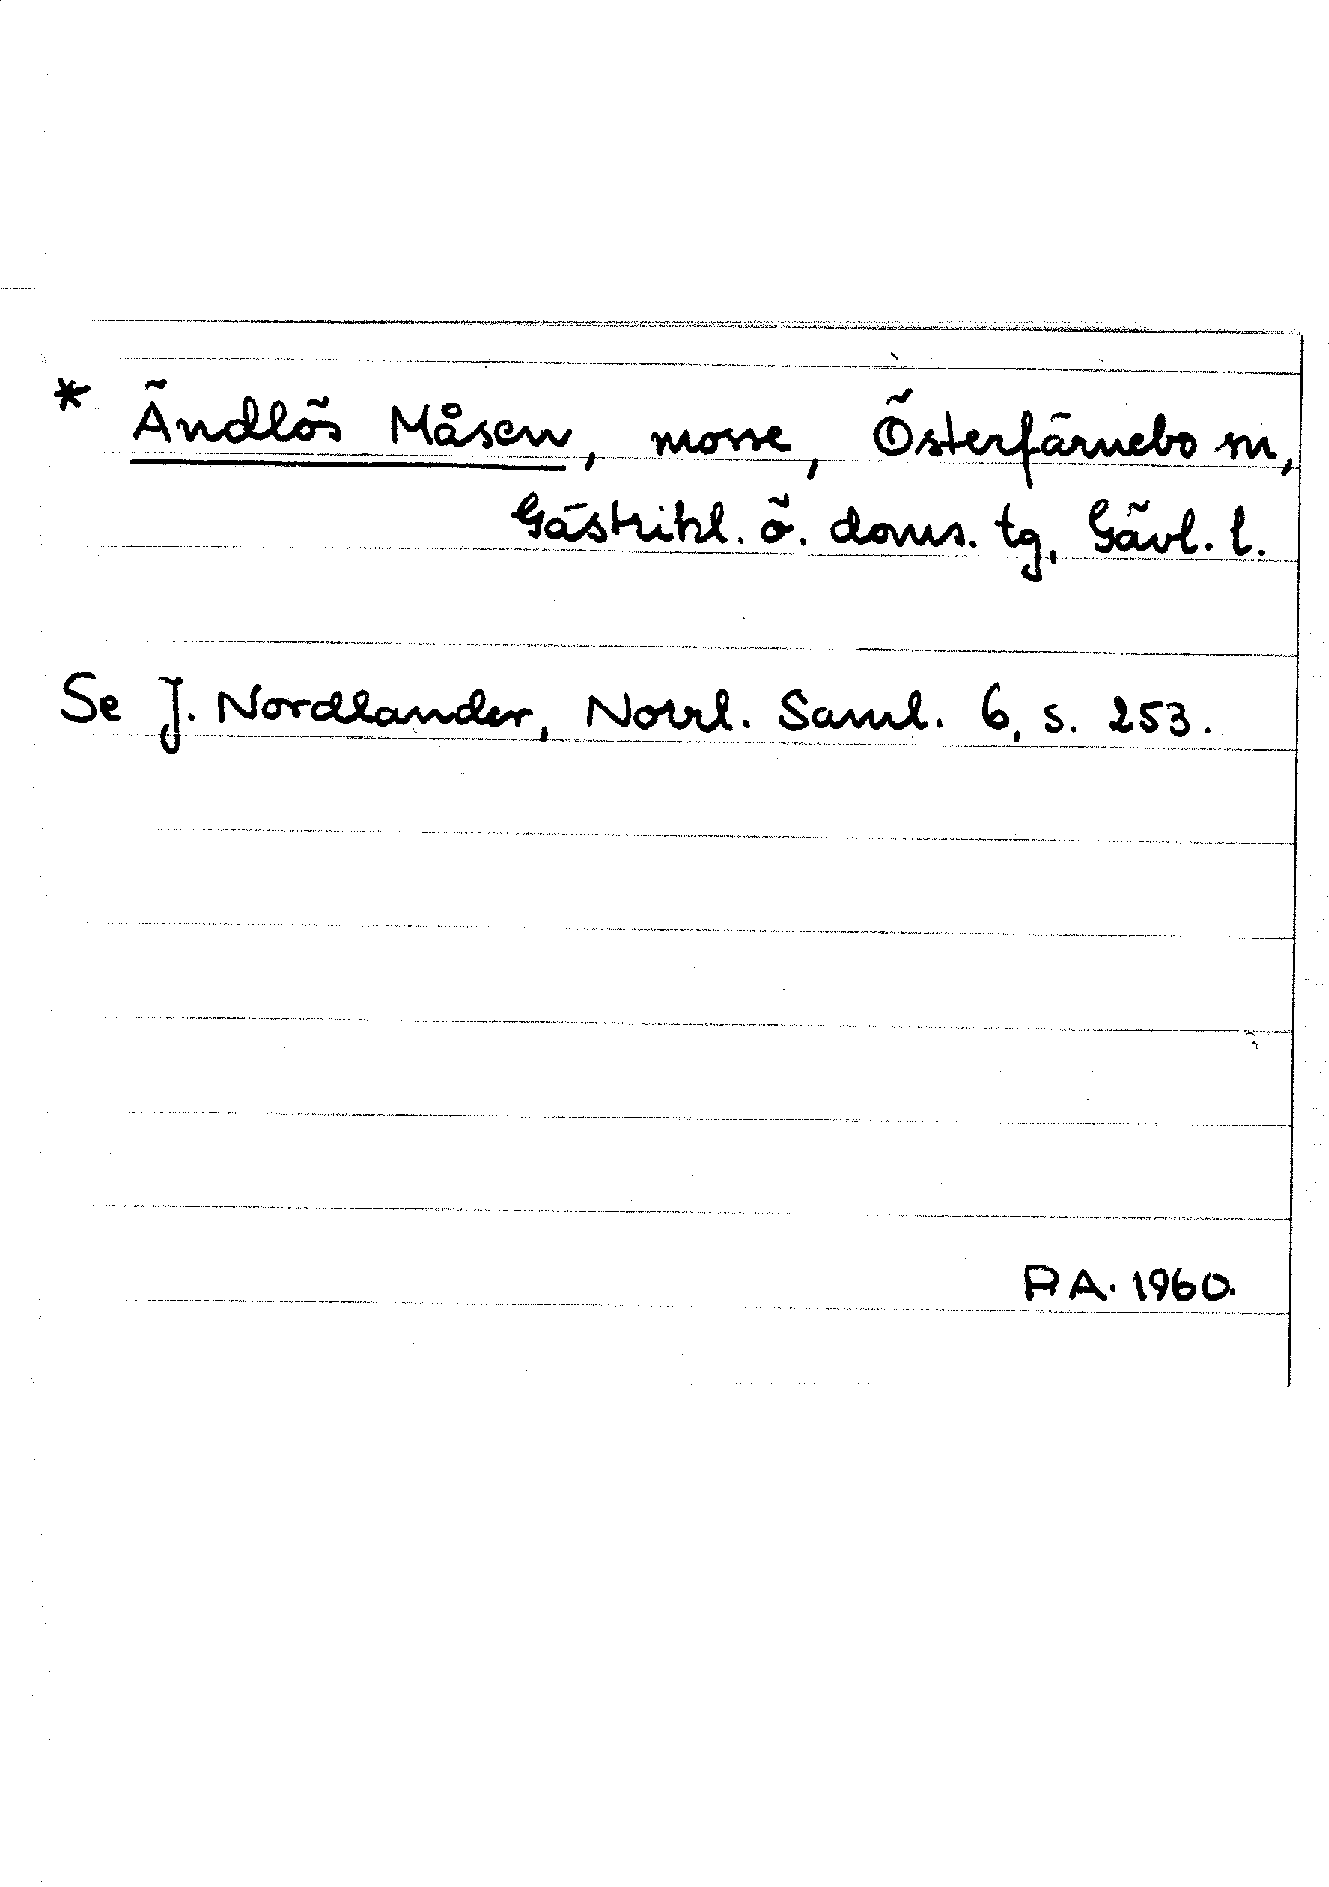 * Ändlös Måsen, mosse, Österfärnebo sn,
Gästrikl. ö. doms. tg, Gävl. l.
Se J. Nordlander, Norrl. Saml. 6, s. 253.
RA. 1960.